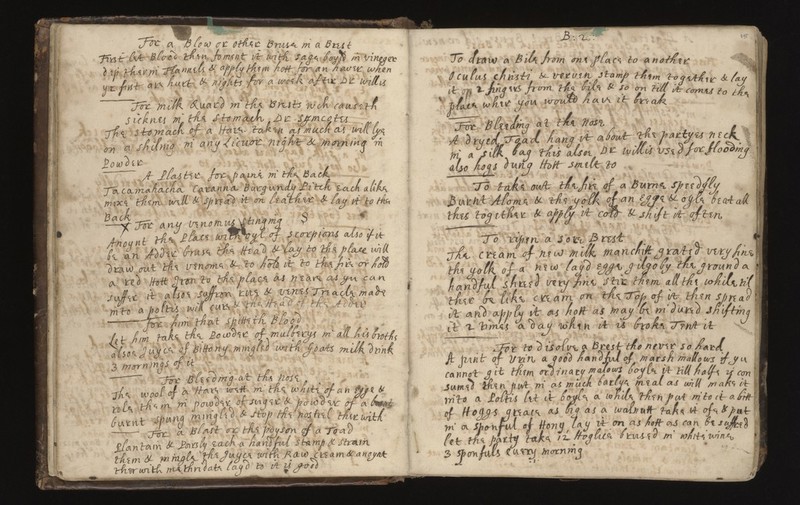 For a Blow or other Bruse in a Brest
First let Blood then foment it with sage boyld in vineger
dip therin Flannels & apply them hott for an hower when
yr first are hurt & nights for a week after Dr willis
For milk Quard in the Brests wch causeth
sicknes in the Stomach, Dr
The stomach of a Hare taken as much as will lye
on a shiling in any Licuor night & morning in
Powder
A Plaster for paine in the Back
Tacamahacha Caranna Burgundy Pitch Each alike
mixe them well & spread it on Leather & lay it to the
Back
X For any venomus stinging
Anoynt the Place with oyl of Scorpions also if it
be an Adder bruse the Head & lay to the place will
draw out the venome & to hold it to the fire or hold
a red Hott Iron to the place as neare as you can
suffer it alsoe saffron rue & venes Treacle made
into a poltis will cure the Head of the Adder
for him that spitteth Blood
Let him take the Powder of mulberys in all his broths
alsoe Juyce of Bittony mingled with Goats milk drink
3 mornings of it
For Bleeding at the nose
The wool of a Hare wett in the white of an Egge &
role them in powder of suger & powder of a
burnt spung mingled & stop the nostrel therwith
For a Blast or the poyson of a Toad
Plantain & Parsly each a handful stamp & strain
them & mingle the Juyce with Raw cream & anoynt
therwith methridate layd to it is good
B: 2
To draw a Bile from one place to another
Oculus christi & verven stamp them together & lay
it 2 fingers from the bile & so on till it comes to the
place wher you would have it break
For Bleeding at the Nose
A dryed Toad hang it about the partyes neck
in a silk bag this alsoe Dr willis used for flooding
also hogs dung Hott smelt to
To take out the fire of a Burne speedyly
Burnt Alome & the yolk of an Egge & oyle beat all
thes together & apply it cold & shift it often
To ripen a sore Brest
The cream of new milk manchitt grated very fine
the yolk of a new layd egge, gilgoby the ground a
handful shred very fine stir them all the while til
there be like cream on the Top of it then spread
it and apply it as hott as may be indured shifting
it 2 times a day when it is broke Tent it
For to disolve a Brest tho never so hard
A pint of Urin a good handful of marsh mallows if yu
cannot git them ordinary malows boyle it till halfe is con
sumed then put in as much barlye meal as will make it
into a Poltis let it boyle a while then put into it a bitt
of Hoggs grease as big as a walnutt take it of & put
in a sponful of Hony lay it on as hott as can be suffered
let the party take 12 Hoglice brused in white wine
3 sponfuls Every morning